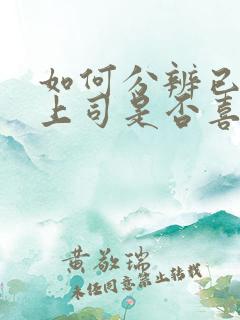 如何分辨已
上司是否喜
黄敬瑞
未经同意禁止转载